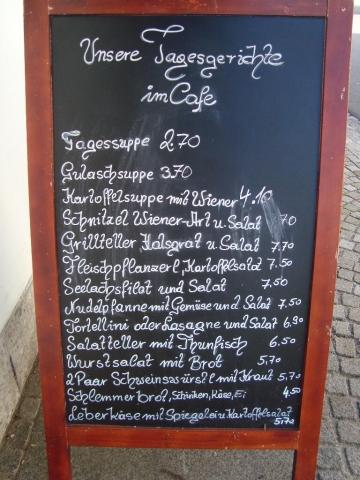 Unsere Tagesgerichte
im Cafe
Tagessuppe 2.70
Gulaschsuppe 3.70
Kartoffelsuppe mit Wiener 4.10
Schnitzel Wiener-Art u. Salat 70
Grillteller Halsgrat u. Salat 7.70
Fleischpflanzerl, Kartoffelsalat 7.50
Seelachsfilat und Salat 7.50
Nudelpfanne mit Gemüse und Salat 7.50
Tortellini oder Lasagne und Salat 6.90
Salatteller mit Thunfisch 6.50
Wurstsalat mit Brot 5.70
2 Paar Schweinswürstl mit Kraut 5.70
Schlemmerbrot, Schinken, Käse, Ei 4.50
Leberkäse mit Spiegelei u. Kartoffelsalat
5.70